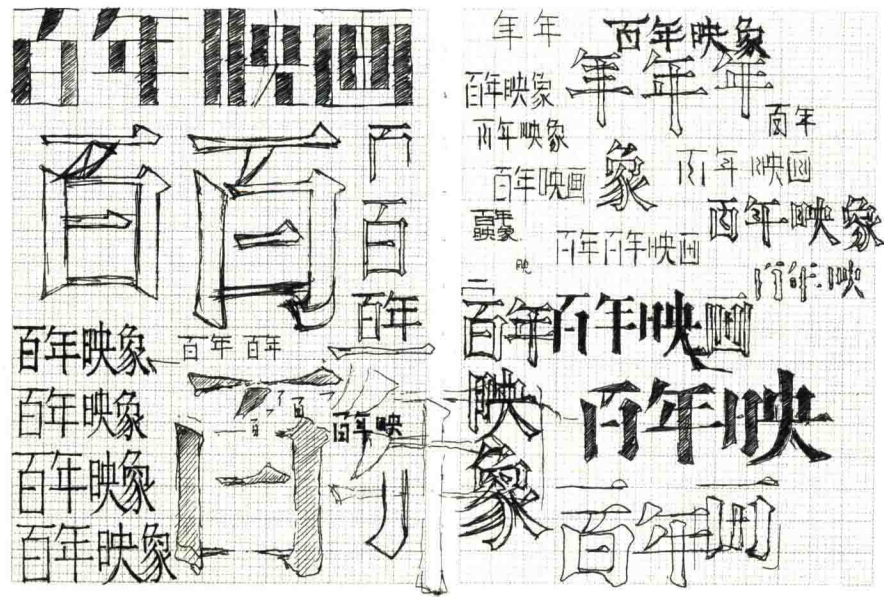 百年映画
百
百
百
百年
百年映象
百年 百年
百年映象
百年映
百年映象
百年映象
年 年
百年映象
年 年 年
百年映象
百年
百年映象
百年映画
象
百年 映画
百年映象
百年映象
映
百年百年映画
百年映
百年
百年映画
映象
百年映
百年映